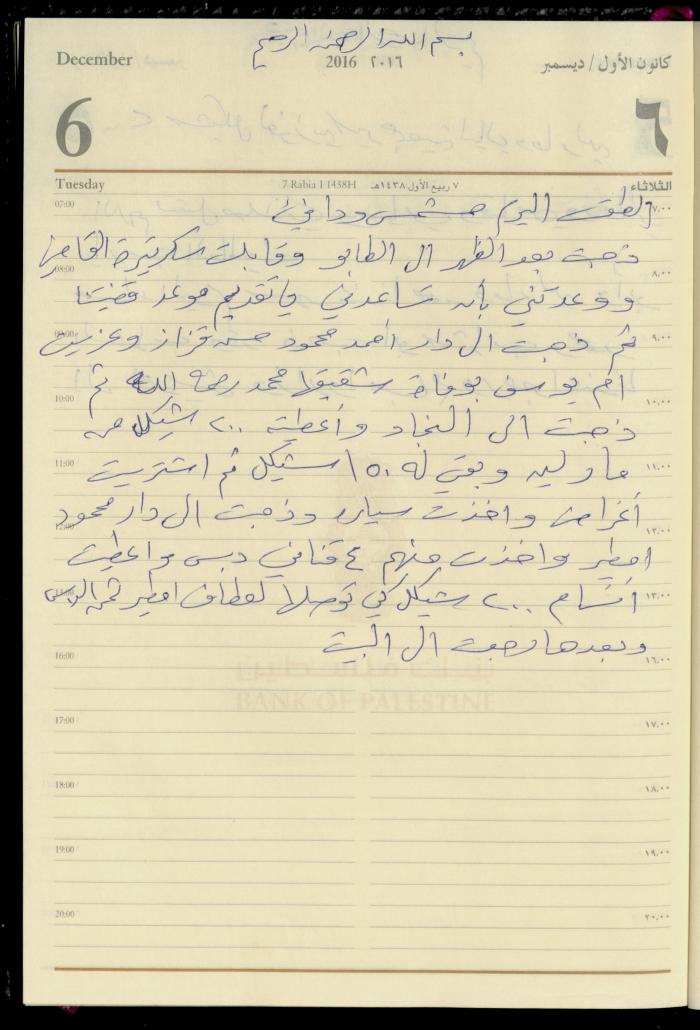 بسم الله الرحمن الرحيم
December
2016 ٢٠١٦
كانون الأول / ديسمبر
6
٦
Tuesday
7 Rabia I 1438H
٧ ربيع الأول ١٤٣٨هـ
الثلاثاء
07:00 ٧,٠٠
الطقس اليوم مشمس ودافئ
ذهبت بعد الظهر الى الطابو وقابلت سكرتيرة القاضي
08:00 ٨,٠٠
ووعدتني بأن تساعدني في تقديم موعد قضيتنا
09:00 ٩,٠٠
ثم ذهبت الى دار احمد محمود حسن قزاز وعزيت
ام يوسف بوفاة شقيقها محمد رحمه الله ثم
10:00 ١٠,٠٠
ذهبت الى النجار وأعطيته ٢٠٠ شيكل من
11:00 ١١,٠٠
وبقي له ١٥٠ شيكل ثم اشتريت
أغراض واخذت سيارة وذهبت الى دار محمود
12:00 ١٢,٠٠
امطير واخذت منهم ٤ قناني دبس واعطيت
13:00 ١٣,٠٠
٢٠٠ شيكل كي توصلها امطير ثمن الدبس
وبعدها رجعت الى البيت
16:00 ١٦,٠٠
بنك فلسطين
BANK OF PALESTINE
17:00 ١٧,٠٠
18:00 ١٨,٠٠
19:00 ١٩,٠٠
20:00 ٢٠,٠٠